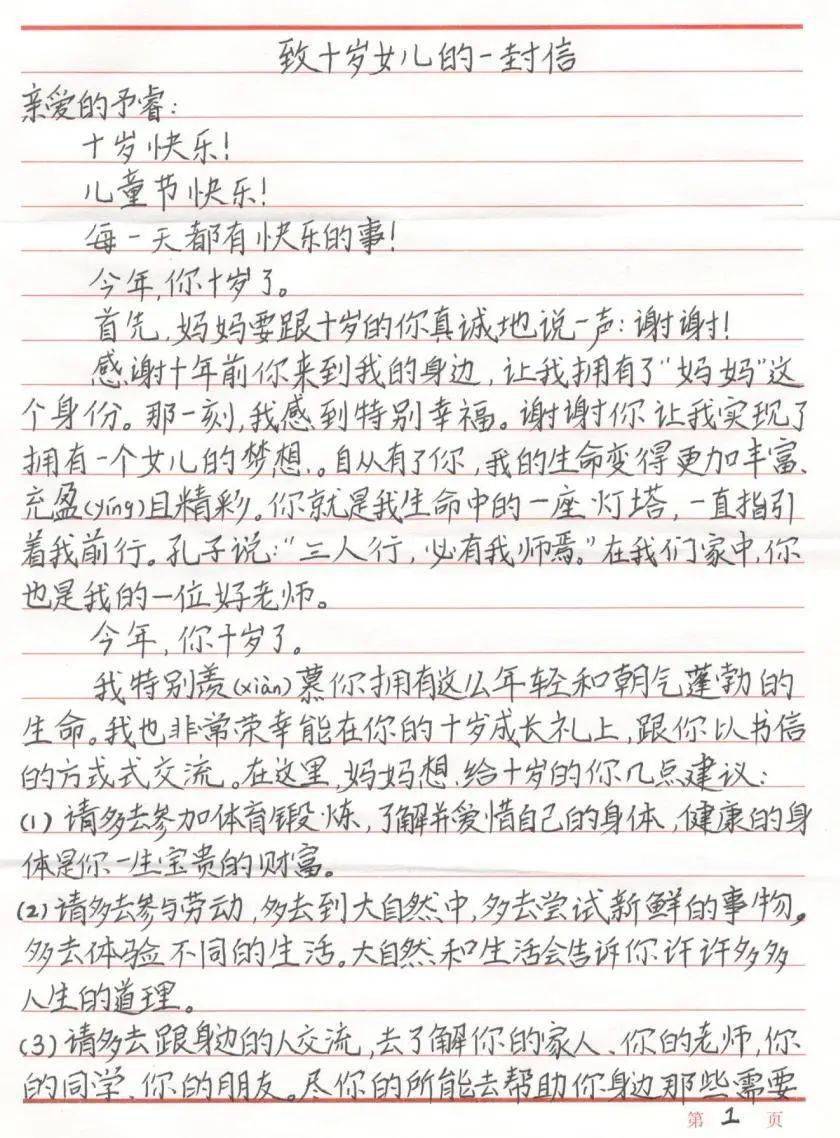 致十岁女儿的一封信
亲爱的予睿:
十岁快乐!
儿童节快乐!
每一天都有快乐的事!
今年,你十岁了。
首先,妈妈要跟十岁的你真诚地说一声:谢谢!
感谢十年前你来到我的身边,让我拥有了“妈妈”这
个身份。那一刻,我感到特别幸福。谢谢你让我实现了
拥有一个女儿的梦想。自从有了你,我的生命变得更加丰富、
充盈(yíng)且精彩。你就是我生命中的一座灯塔,一直指引
着我前行。孔子说:“三人行,必有我师焉。”在我们家中,你
也是我的一位好老师。
今年,你十岁了。
我特别羡(xiàn)慕你拥有这么年轻和朝气蓬勃的
生命。我也非常荣幸能在你的十岁成长礼上,跟你以书信
的方式式交流。在这里,妈妈想给十岁的你几点建议:
(1)请多去参加体育锻炼,了解并爱惜自己的身体,健康的身
体是你一生宝贵的财富。
(2)请多去参与劳动,多去到大自然中,多去尝试新鲜的事物,
多去体验不同的生活。大自然和生活会告诉你许许多多
人生的道理。
(3)请多去跟身边的人交流,去了解你的家人、你的老师,你
的同学、你的朋友。尽你的所能去帮助你身边那些需要
第 1 页